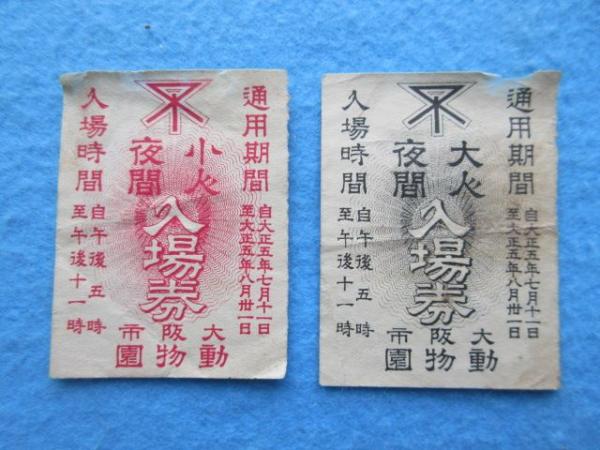 通用期間
自大正五年七月十一日
至大正五年八月卅一日
小人
夜間
入場券
入場時間
自午後五時
至午後十一時
大阪市
動物園
通用期間
自大正五年七月十一日
至大正五年八月卅一日
大人
夜間
入場券
入場時間
自午後五時
至午後十一時
大阪市
動物園